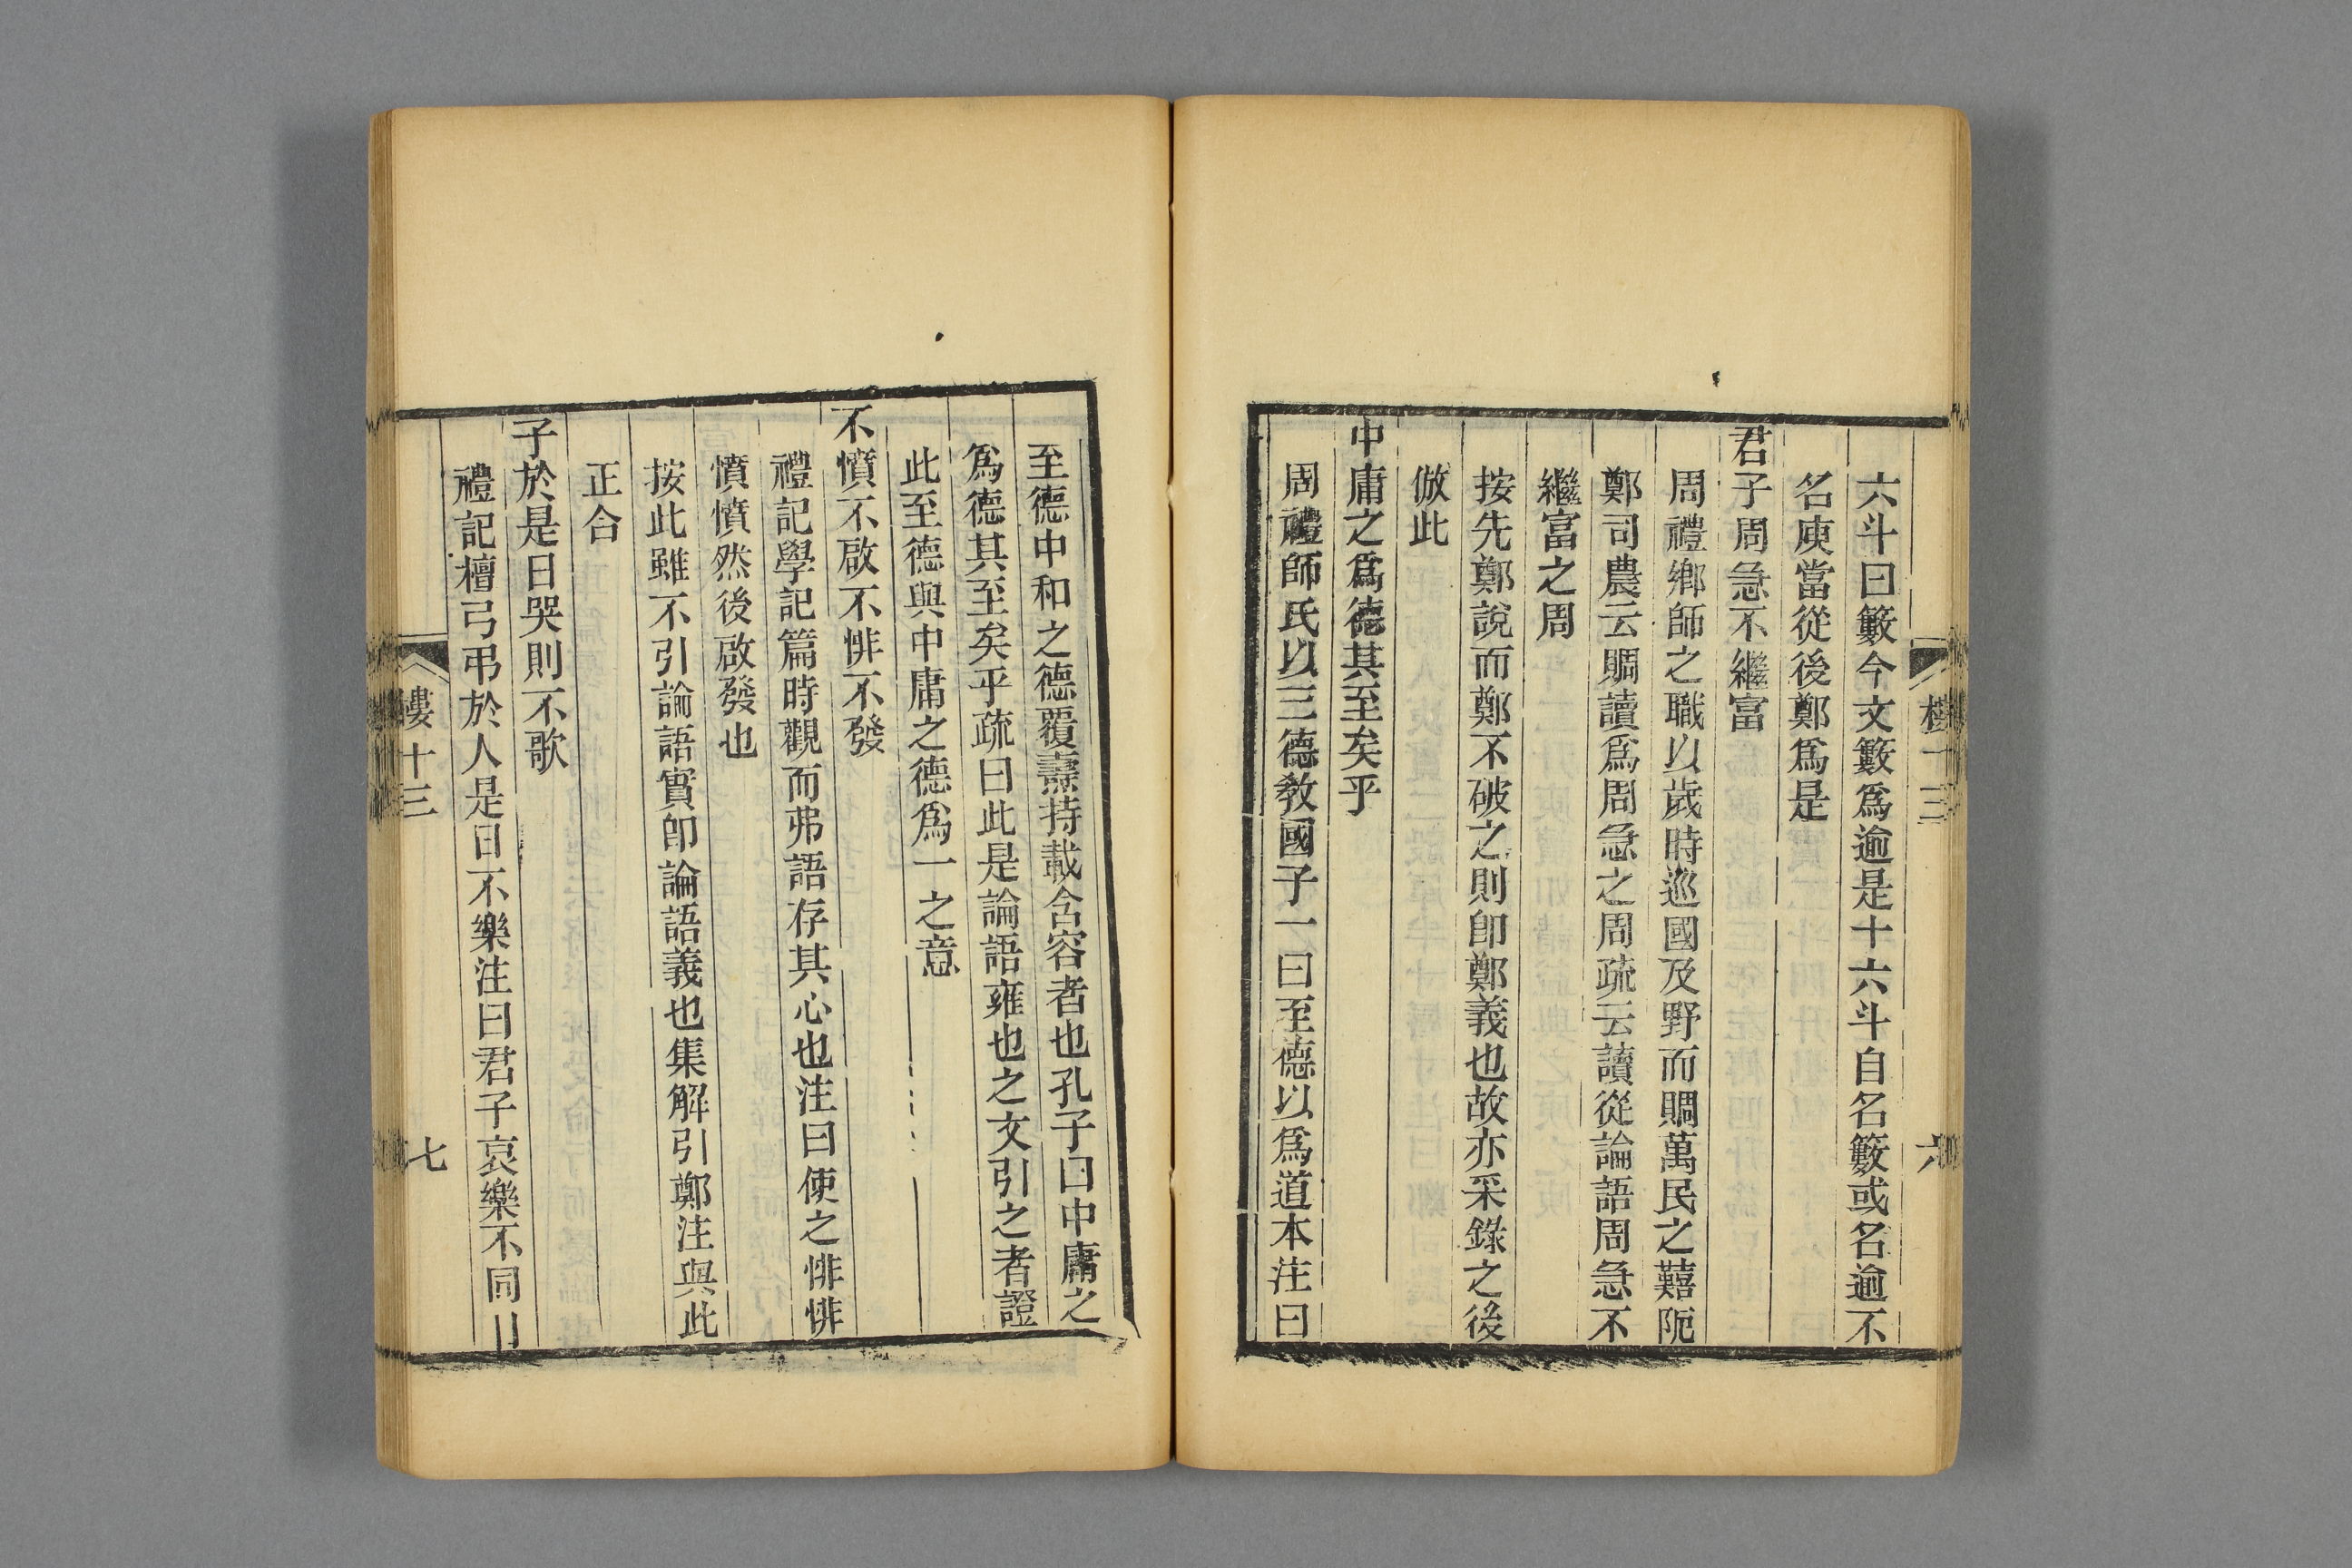 六斗曰籔今文籔爲逾是十六斗自名籔或名逾不
名庾當從後鄭爲是
君子周急不繼富
周禮鄉師之職以歲時巡國及野而賙萬民之囏阨
鄭司農云賙讀爲周急之周疏云讀從論語周急不
繼富之周
按先鄭說而鄭不破之則卽鄭義也故亦采錄之後
倣此
中庸之爲德其至矣乎
周禮師氏以三德敎國子一曰至德以爲道本注曰
樓十三
六
至德中和之德覆燾持載含容者也孔子曰中庸之
爲德其至矣乎疏曰此是論語雍也之文引之者證
此至德與中庸之德爲一之意
不憤不啟不悱不發
禮記學記篇時觀而弗語存其心也注曰使之悱悱
憤憤然後啟發也
按此雖不引論語實卽論語義也集解引鄭注與此
正合
子於是日哭則不歌
禮記檀弓弔於人是日不樂注曰君子哀樂不同日
樓十三
七